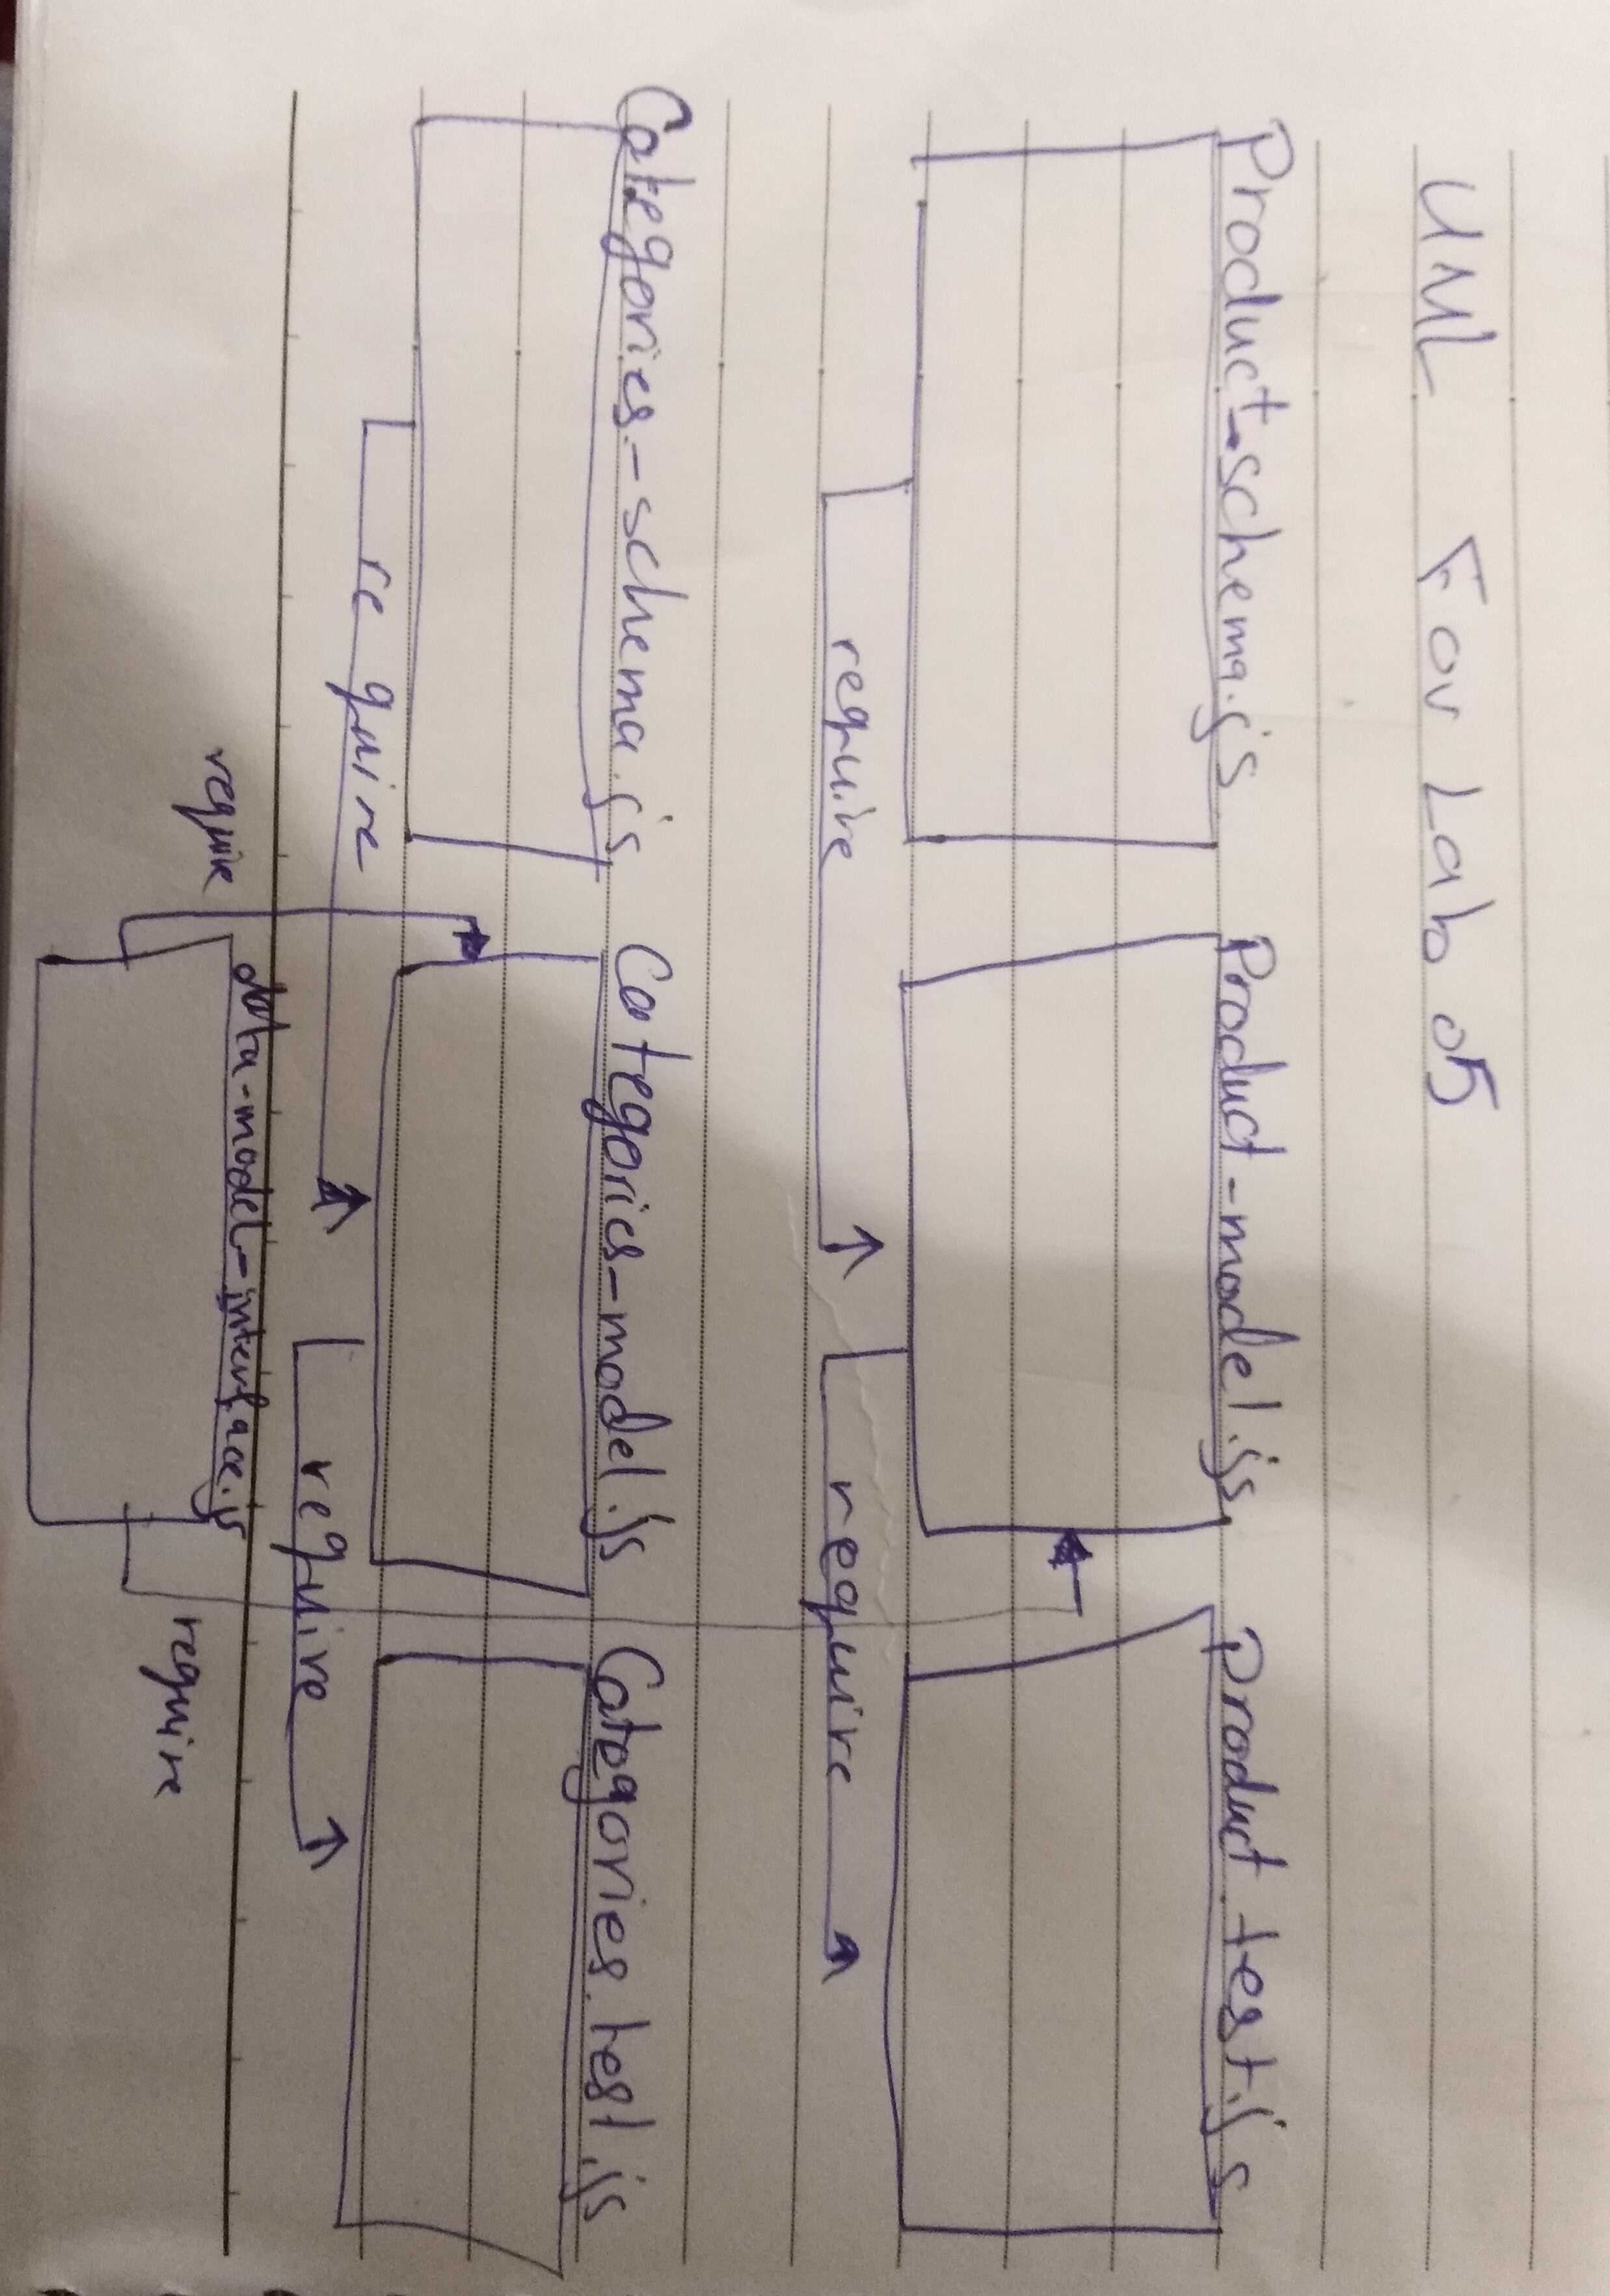 UML For Lab 05
Product-schema.js Product-model.js Product.test.js
require require
Categories-schema.js Categories-model.js Categories.test.js
require require
require data-model-interface.js require